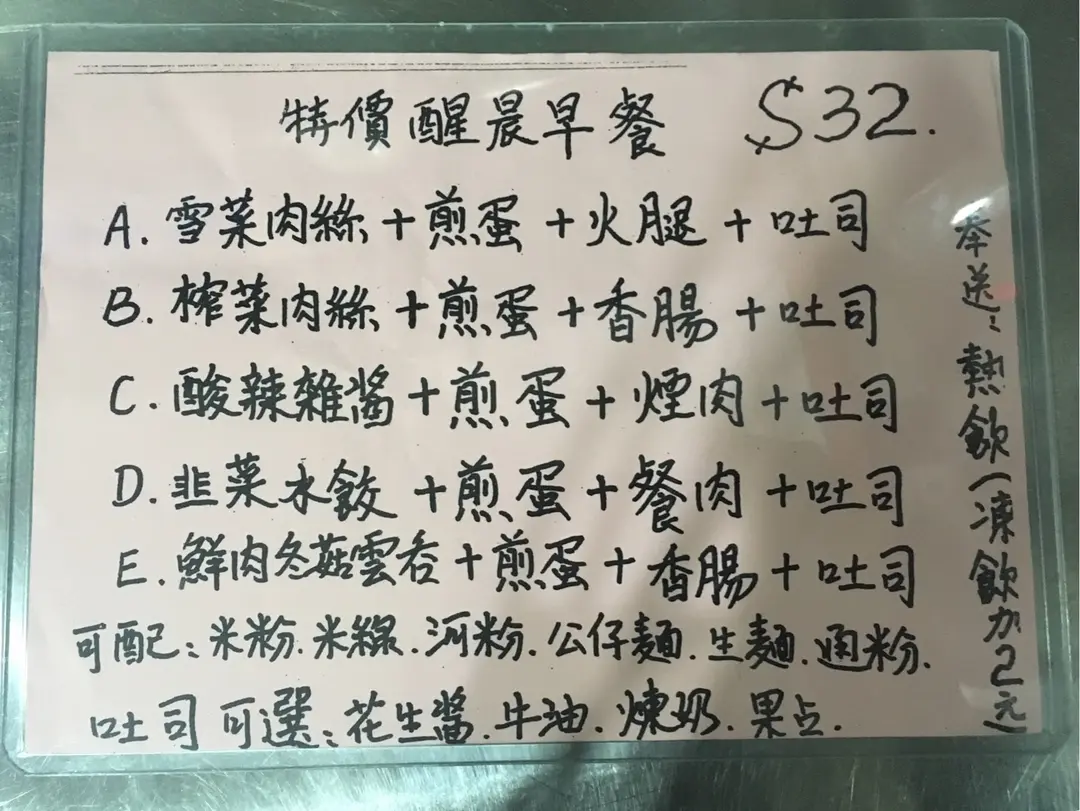 特價醒晨早餐 $32.
A. 雪菜肉絲+煎蛋+火腿+吐司
B. 榨菜肉絲+煎蛋+香腸+吐司
C. 酸辣雜醬+煎蛋+煙肉+吐司
D. 韭菜水餃+煎蛋+餐肉+吐司
E. 鮮肉冬菇雲吞+煎蛋+香腸+吐司
可配:米粉.米線.河粉.公仔麵.生麵.通粉.
吐司可選:花生醬.牛油.煉奶.果占.
奉送:熱飲(凍飲加2元)